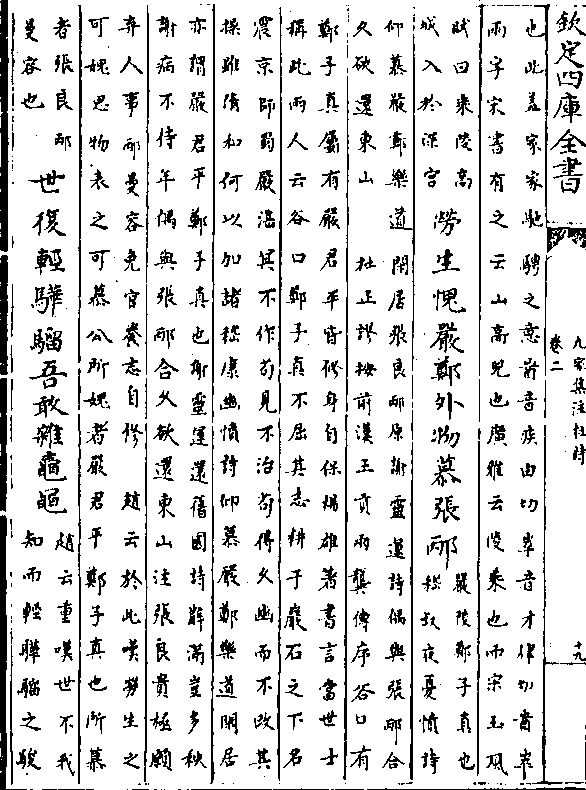 欽定四庫全書
九家集注杜詩
卷二
十九
也此蓋家家馳騁之意崷音疾由切崒音才律切崷崒
兩字字書有之云山高皃也廣雅云陵乘也而宋玉風
賦曰乘陵高
城入於深宮
勞生愧嚴鄭外物慕張邴
嚴陵鄭子真也
嵇叔夜憂憤詩
仰慕嚴鄭樂道閒居張良邴原謝靈運詩偶與張邴合
久欲還東山 杜正謬按前漢王貢兩龔傳序谷口有
鄭子真蜀有嚴君平皆修身自保楊雄著書言當世士
稱此兩人云谷口鄭子真不屈其志耕于巖石之下名
震京師蜀嚴湛冥不作苟見不治苟得久幽而不改其
操雖隋和何以加諸嵇康幽憤詩仰慕嚴鄭樂道閑居
亦謂嚴君平鄭子真也謝靈運還舊園詩辭滿豈多秩
謝病不待年偶與張邴合久欲還東山注張良貴極願
弃人事邴曼容免官養志自修 趙云於此嘆勞生之
可媿思物表之可慕公所媿者嚴君平鄭子真也所慕
者張良邴
曼容也
世復輕驊騮吾敢雜鼃黽
趙云重嘆世不我
知而輕驊騮之駿